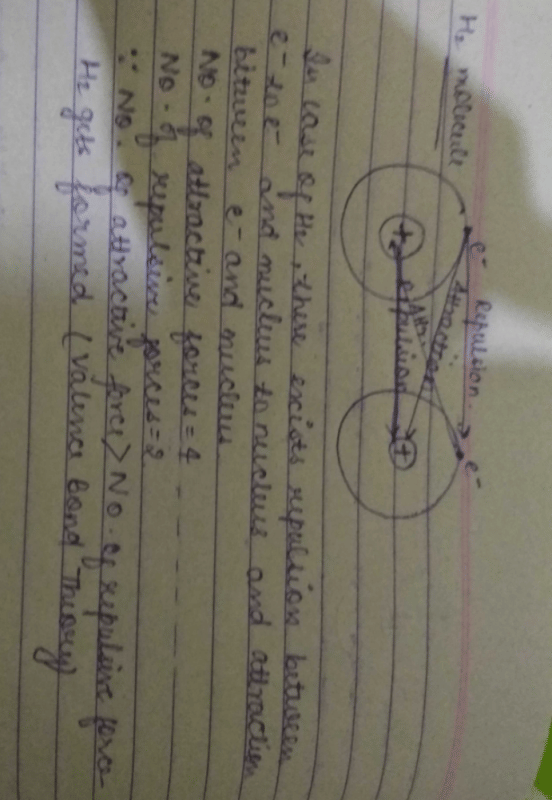 H2 molecule
e- Repulsion e-
Attraction
Attr
+ repulsion +
In case of H2, there exists repulsion between
e- to e- and nucleus to nucleus and attraction
between e- and nucleus
No. of attractive forces = 4
No. of repulsive forces = 2
∵ No. of attractive force > No. of repulsive force
H2 gets formed (Valence bond Theory)